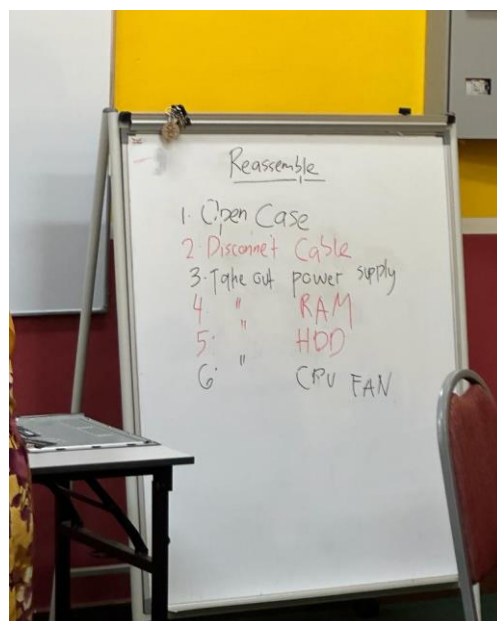 Reassemble
1. Open Case
2. Disconnet Cable
3. Take out power supply
4 " RAM
5. " HDD
6. " CPU FAN